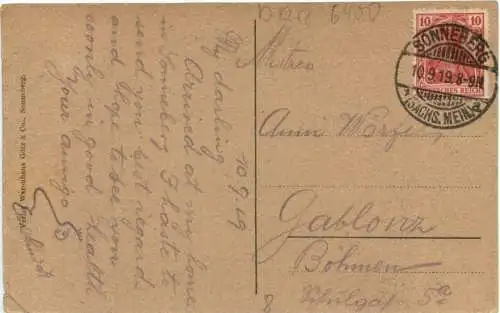 10.9.19
My darling
Arrived at my home
in Sonneberg I haste to
send you best regards
and hope to see you
soonly in good health
Your amigo
Verlag Warenhaus Götz & Co., Sonneberg.
DEUTSCHES REICH
10 10
SONNEBERG
10.9.19.8-9N
(SACHS. MEIN.)
Anni
Gablonz
Böhmen
Schulgas. 5a
8